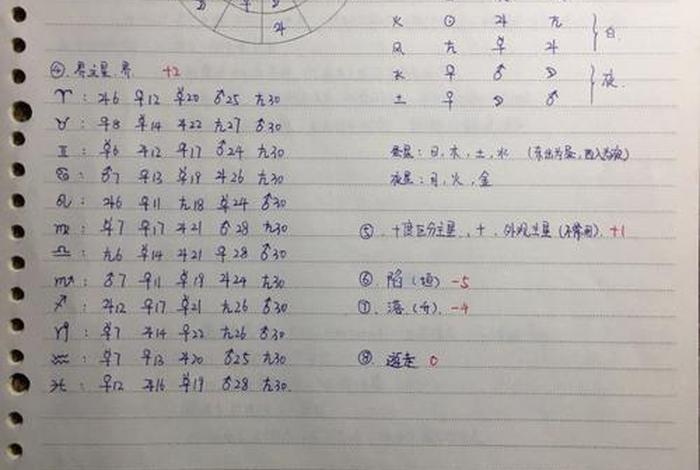 ☽ ♀ ☽
♃
火 ☉ ♃ ♄ 白
风 ♄ ☿ ♃
水 ♀ ♂ ☽ 夜
土 ♀ ☽ ♂
④. 界主星. 界 +2
♈︎ : ♃6 ♀12 ☿20 ♂25 ♄30
♉︎ : ♀8 ☿14 ♃22 ♄27 ♂30
♊︎ : ☿6 ♃12 ♀17 ♂24 ♄30
♋︎ : ♂7 ♀13 ☿19 ♃26 ♄30
♌︎ : ♃6 ♀11 ♄18 ☿24 ♂30
♍︎ : ☿7 ♀17 ♃21 ♂28 ♄30
♎︎ : ♄6 ☿14 ♃21 ♀28 ♂30
♏︎ : ♂7 ♀11 ☿19 ♃24 ♄30
♐︎ : ♃12 ♀17 ☿21 ♄26 ♂30
♑︎ : ☿7 ♃14 ♀22 ♄26 ♂30
♒︎ : ☿7 ♀13 ♃20 ♂25 ♄30
♓︎ : ♀12 ♃16 ☿19 ♂28 ♄30.
昼星 : 日, 木, 土, 水 (东出为昼, 西入为夜)
夜星 : 月, 火, 金
⑤. 十度区分主星. 十. 外观主星 (不常用). +1
⑥. 陷 -5
⑦. 落 -4
⑧. 逆走 0